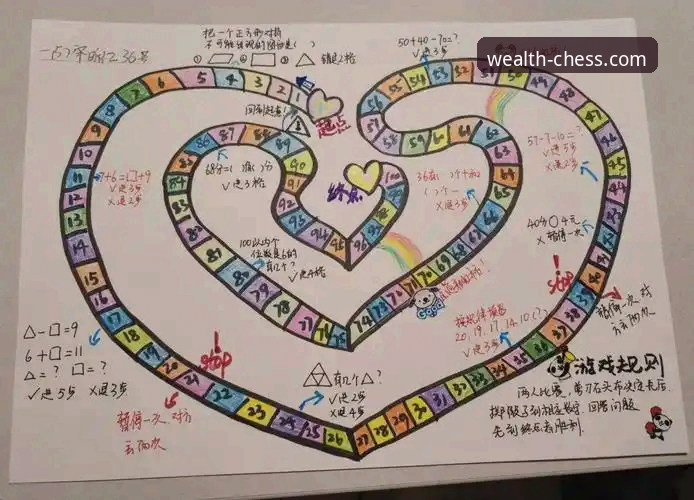 一(5)
把一个正方形对折
不可能出现的图形是( )
① ② ③ 错退2格
50+40-70=?
✓进3步
wealth-chess.com
回到起点!
起点
终点
7+6=□+9
✓进3步
✗退2步
68分=( )角( )分
✓进3格
36有( )个十和
( )个一
✗退3步
57-7-10=?
✓进3步
✗退2步
40分○4元
✗暂停一次
100以内个
位数是6的
有几个?
✓进4格
Stop
Stop
暂停一次,对
方走两次
按规律填数
20,19,17,14,10,(?)
✓进3步
△-□=9
6+□=11
△=? □=?
✓进5步 ✗退3步
有几个△?
✓进2步
✗退4步
暂停一次,对方
走两次
游戏规则
两人比赛,剪刀石头布决定先后
掷骰子到相应数字,回答问题
先到终点者胜利.
1 2 3 4 5 6 7 8 9 10 11 12 13 14 15 16 17 18 19 20 21 22 23 24 25 26 27 28 29 30 31 32 33 34 35 36 37 38 39 40
44 45 46 47 48 49 50 51 52 53 54 55 56 57 58 59 60 61 62 63 64 65 66
68 69 70 71 72 73 74 75 76 77 78 79 80 81 82 83 84 85 86 87 88 89 90 91 92 93 94 95 96
100